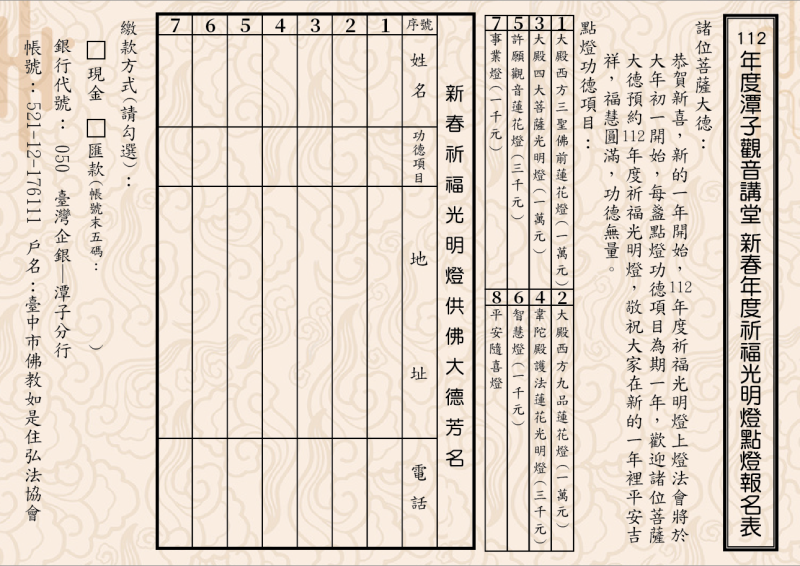 112年度潭子觀音講堂 新春年度祈福光明燈點燈報名表
諸位菩薩大德：
恭賀新喜，新的一年開始，112年度祈福光明燈上燈法會將於
大年初一開始，每盞點燈功德項目為期一年，歡迎諸位菩薩
大德預約112年度祈福光明燈，敬祝大家在新的一年裡平安吉
祥，福慧圓滿，功德無量。
點燈功德項目：
1 大殿西方三聖佛前蓮花燈(一萬元)
2 大殿西方九品蓮花燈(一萬元)
3 大殿四大菩薩光明燈(一萬元)
4 韋陀殿護法蓮花光明燈(三千元)
5 許願觀音蓮花燈(三千元)
6 智慧燈(一千元)
7 事業燈(一千元)
8 平安隨喜燈
新春祈福光明燈供佛大德芳名
序號 姓名 功德項目 地址 電話
1
2
3
4
5
6
7
繳款方式(請勾選)：
□現金 □匯款(帳號末五碼： )
銀行代號：050 臺灣企銀—潭子分行
帳號：521-12-176111 戶名：臺中市佛教如是住弘法協會